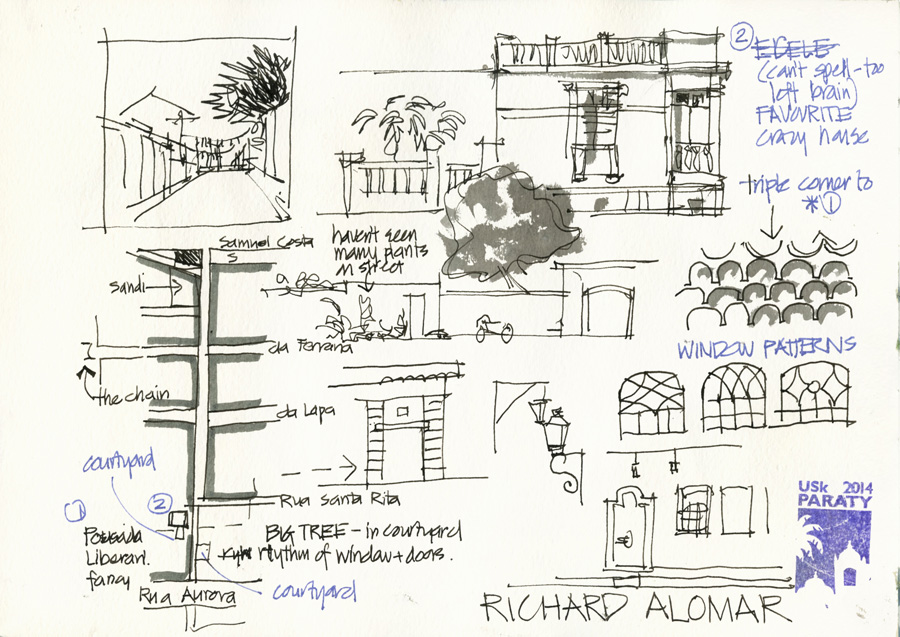 ②
EICELE
(can't spell - too
left brain)
FAVOURITE
crazy house
triple corner to
* ①
haven't seen
many plants
on street
Samuel Costa
S
Sandi
da Ferraria
the chain
da Lapa
WINDOW PATTERNS
courtyard
Rua Santa Rita
① ②
Pousada
Literari.
fancy
BIG TREE - in courtyard
rhythm of window + doors.
courtyard
Rua Aurora
USk 2014
PARATY
RICHARD ALOMAR